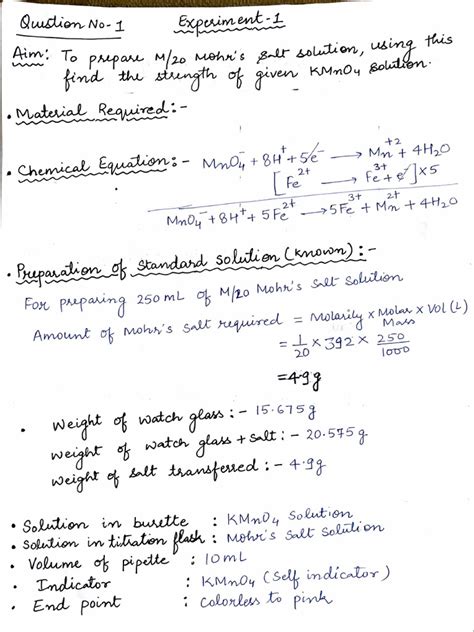 Question No-1 Experiment-1
Aim: To prepare M/20 Mohr's salt solution, using this
find the strength of given KMnO4 solution.
• Material Required:-
• Chemical Equation:- MnO4⁻ + 8H⁺ + 5e⁻ → Mn⁺² + 4H2O
[Fe²⁺ → Fe³⁺ + e⁻] x5
MnO4⁻ + 8H⁺ + 5Fe²⁺ → 5Fe³⁺ + Mn²⁺ + 4H2O
• Preparation of Standard Solution (known):-
For preparing 250 mL of M/20 Mohr's Salt Solution
Amount of Mohr's salt required = Molarity x Molar Mass x Vol (L)
= 1/20 x 392 x 250/1000
= 4.9g
• Weight of watch glass:- 15.675g
Weight of watch glass + salt:- 20.575g
Weight of salt transferred:- 4.9g
• Solution in burette : KMnO4 Solution
• Solution in titration flask : Mohr's Salt Solution
• Volume of pipette : 10mL
• Indicator : KMnO4 (Self indicator)
• End point : Colorless to pink